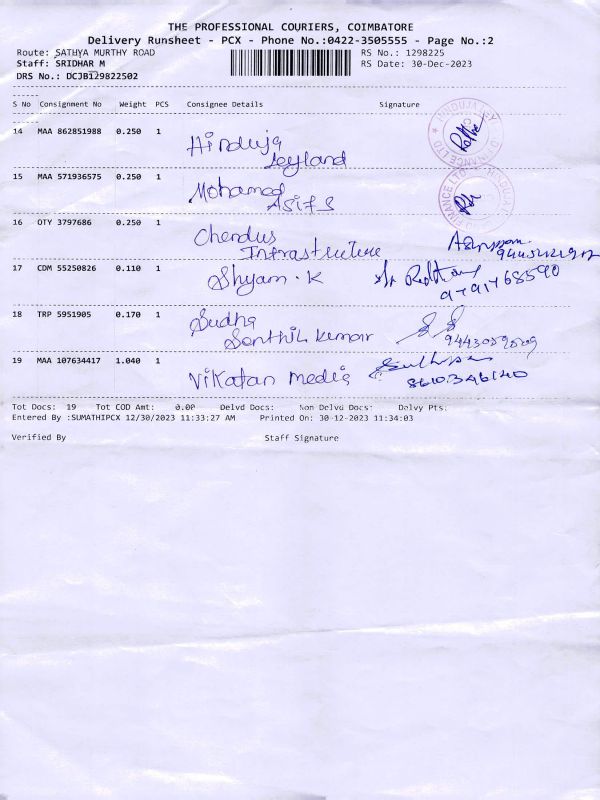 THE PROFESSIONAL COURIERS, COIMBATORE
Delivery Runsheet - PCX - Phone No.:0422-3505555 - Page No.:2
Route: SATHYA MURTHY ROAD RS No.: 1298225
Staff: SRIDHAR M RS Date: 30-Dec-2023
DRS No.: DCJB129822502
S No Consignment No Weight PCS Consignee Details Signature
14 MAA 862851988 0.250 1 Hinduja
Leyland
15 MAA 571936575 0.250 1 Mohamed
Asif S
16 OTY 3797686 0.250 1 Chendus
Infrastructure
17 CDM 55250826 0.110 1 Shyam.K
9791768590
18 TRP 5951905 0.170 1 Sudha
Senthil Kumar
19 MAA 107634417 1.040 1 Vikatan Media
8610346140
Tot Docs: 19 Tot COD Amt: 0.00 Delvd Docs: Non Delvd Docs: Delvy Pts:
Entered By :SUMATHIPCX 12/30/2023 11:33:27 AM Printed On: 30-12-2023 11:34:03
Verified By Staff Signature